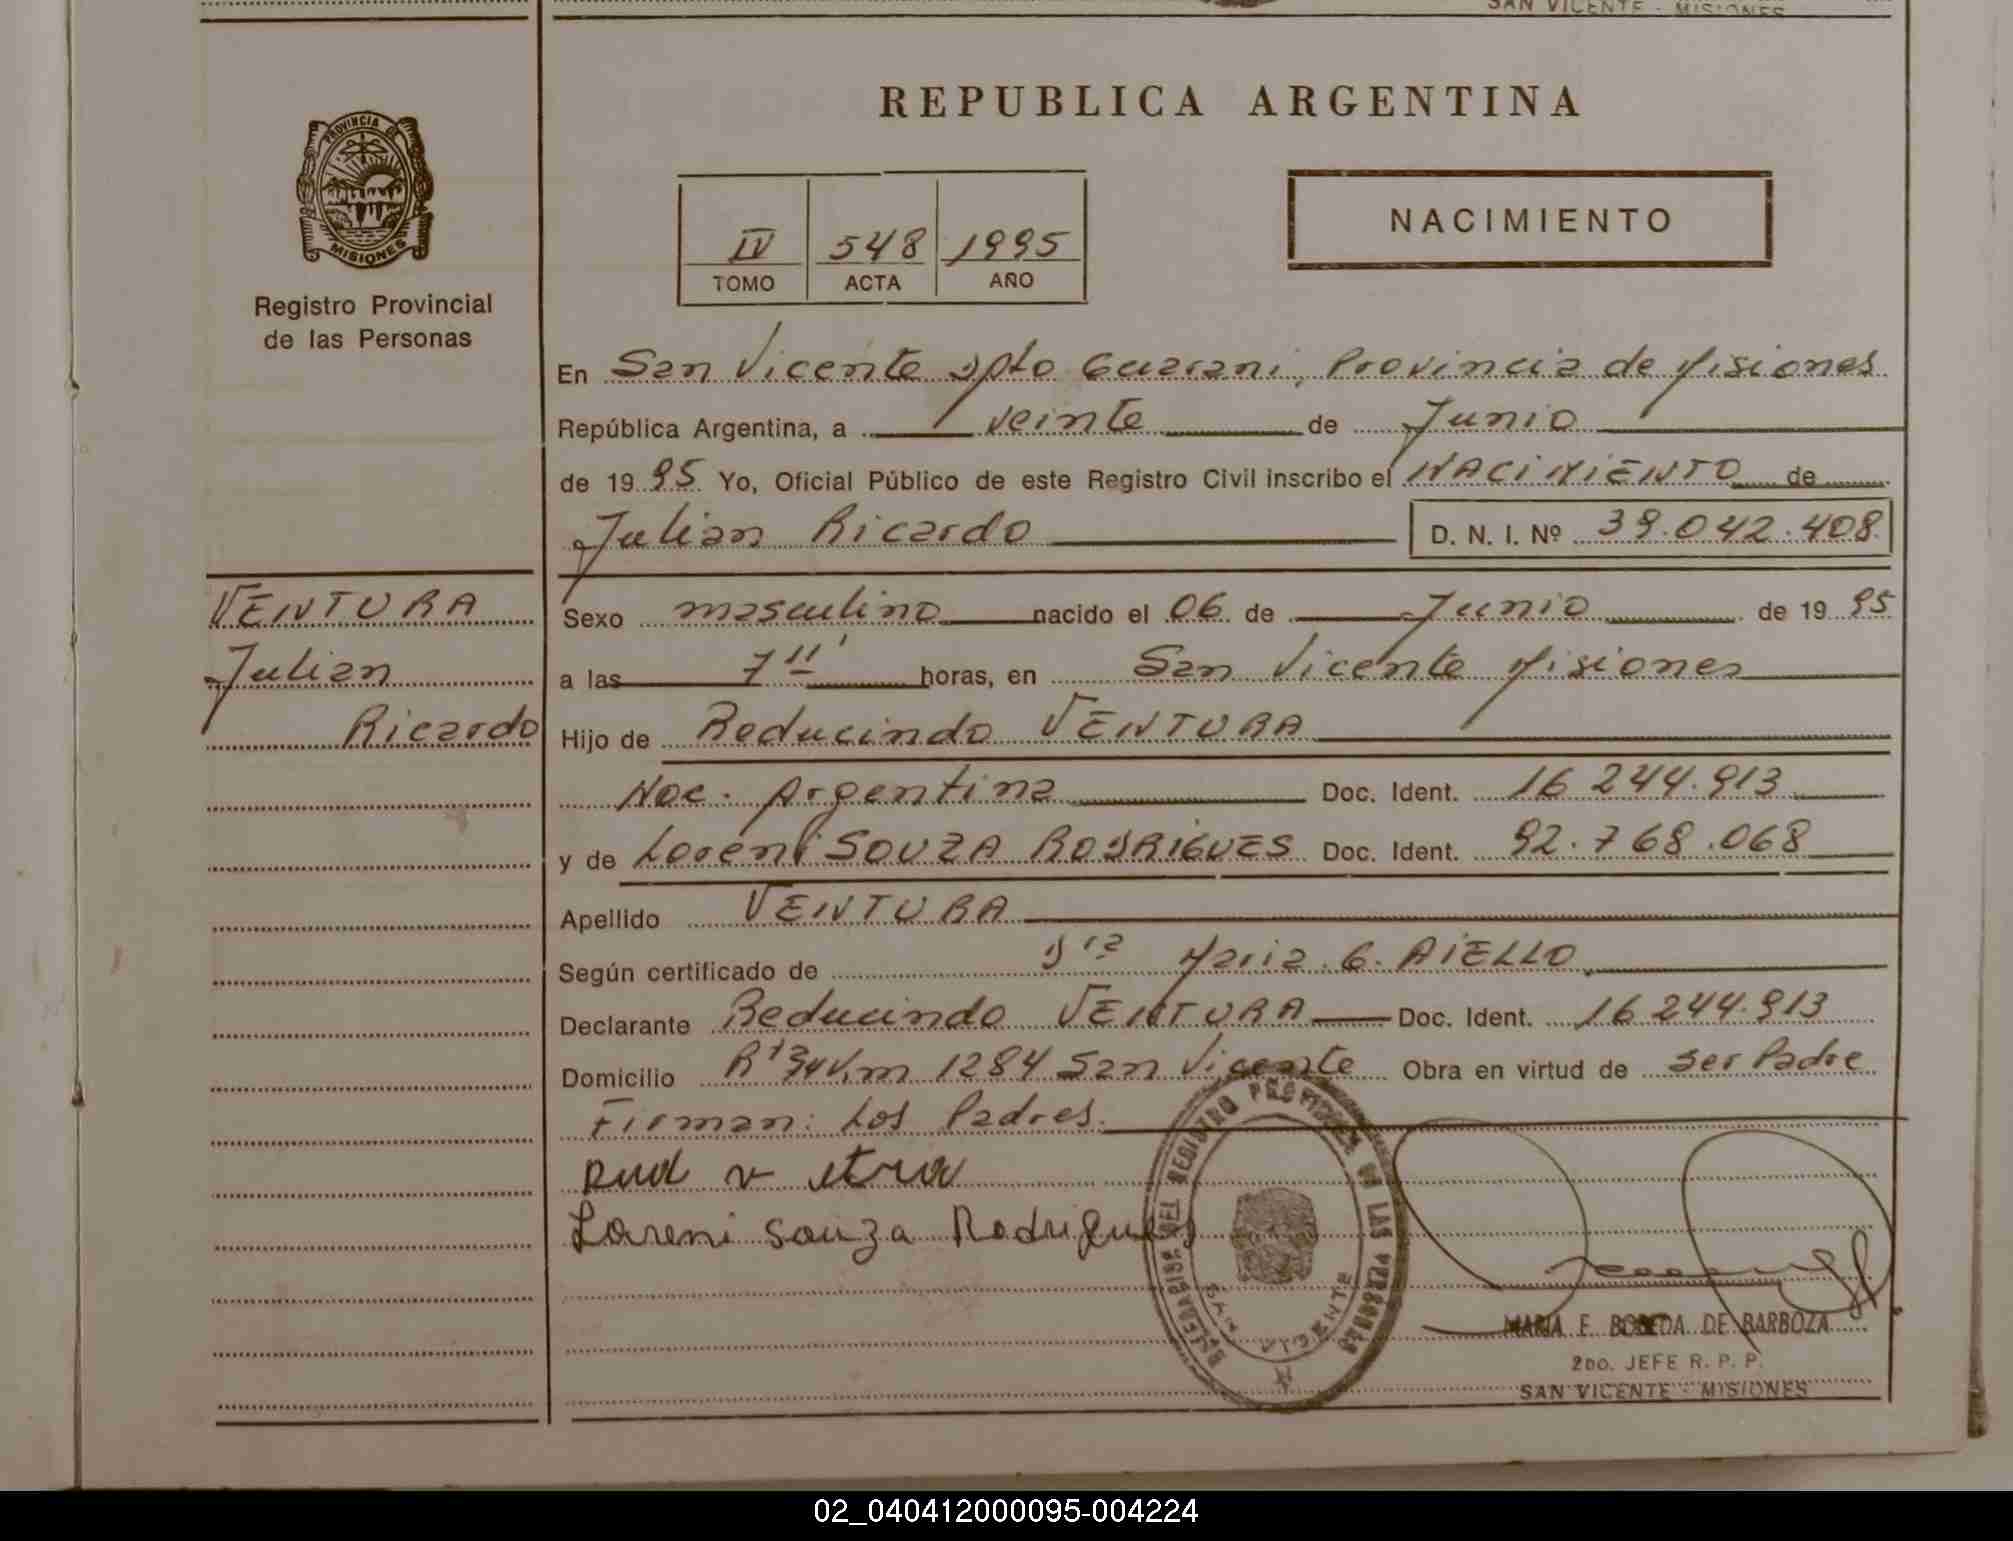 SAN VICENTE - MISIONES
PROVINCIA DE
MISIONES
Registro Provincial
de las Personas
REPUBLICA ARGENTINA
IV 548 1995
TOMO ACTA AÑO
NACIMIENTO
En San Vicente Dpto Guarani, Provincia de Misiones
República Argentina, a veinte de Junio
de 1995 Yo, Oficial Público de este Registro Civil inscribo el NACIMIENTO de
Julian Ricardo D. N. I. Nº 39.042.408
VENTURA
Julian
Ricardo
Sexo masculino nacido el 06 de Junio de 1995
a las 7 horas, en San Vicente Misiones
Hijo de Reducindo VENTURA
Nac. Argentina Doc. Ident. 16 244.913
y de Loreni SOUZA RODRIGUES Doc. Ident. 92.768.068
Apellido VENTURA
Según certificado de Dra Maria G. AIELLO
Declarante Reducindo VENTURA Doc. Ident. 16 244.913
Domicilio Km 1284 San Vicente Obra en virtud de ser Padre
Firman: Los Padres.
Loreni Souza Rodrigues
DEL REGISTRO PROVINCIAL DE LAS PERSONAS
SAN VICENTE
MARIA E. BOBEDA DE BARBOZA
2DO. JEFE R. P. P.
SAN VICENTE - MISIONES
02_040412000095-004224